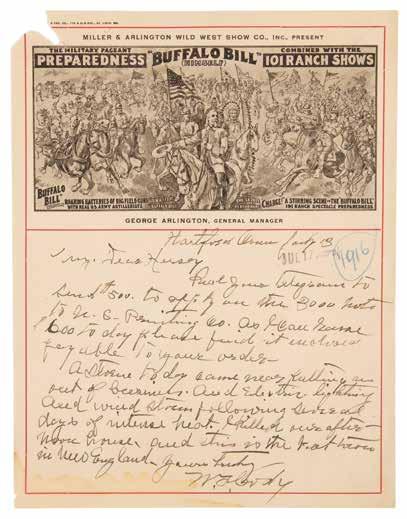 MILLER & ARLINGTON WILD WEST SHOW CO., INC., PRESENT
THE MILITARY PAGEANT
PREPAREDNESS
"BUFFALO BILL"
(HIMSELF)
COMBINED WITH THE
101 RANCH SHOWS
"BUFFALO BILL"
ROARING BATTERIES OF BIG FIELD GUNS
WITH REAL U.S. ARMY ARTILLERISTS
CHARGE! A STIRRING SCENE—THE BUFFALO BILL
101 RANCH SPECTACLE PREPAREDNESS
GEORGE ARLINGTON, GENERAL MANAGER
Hartford Conn July 13
JUL 17
1916
My Dear
your telegram to
send $500. to apply on the 3000 note
to U. S. Printing Co. As I can spare
600 to day please find it inclosed
payable to your order
A storm to day came near putting us
out of business. And Electric lightning
and wind storm following several
days of intense heat. Killed our after
noon house. and this is the
in New England. Yours truly
W. F. Cody